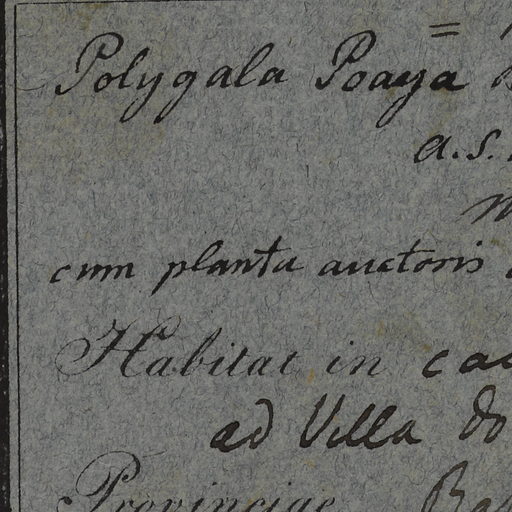 =
Polygala Poaya
a.s.
cum planta auctoris
Habitat in
ad Villa do
Provinciae